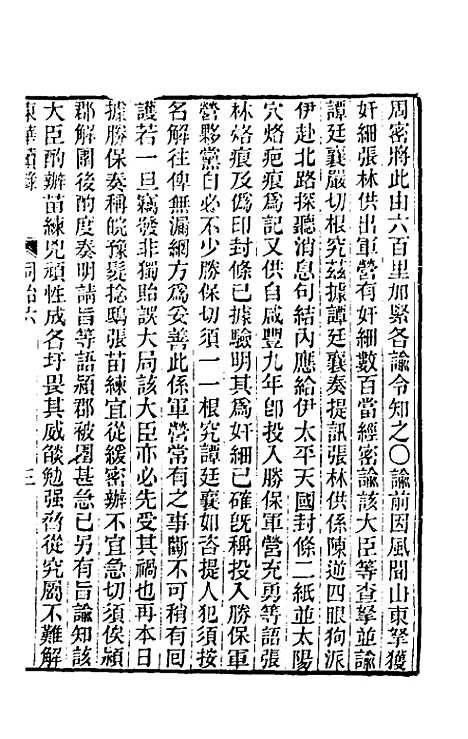 周密將此由六百里加緊各諭令知之〇諭前因風聞山東拏獲
奸細張林供出軍營有奸細數百當經密諭該大臣等查拏並諭
譚廷襄嚴切根究茲據譚廷襄奏提訊張林供係陳逆四眼狗派
伊赴北路探聽消息勾結內應給伊太平天國封條二紙並太陽
穴烙疤痕爲記又自咸豐九年卽投入勝保軍營充勇等語張
林烙痕及僞印封條已據驗明其爲奸細已確旣稱投入勝保軍
營夥黨自必不少勝保切須一一根究譚廷襄如咨提人犯須按
名解往俾無漏網方爲妥善此係軍營常有之事斷不可稍有囘
護若一旦竊發非獨貽誤大局該大臣亦必先受其禍也再本日
據勝保奏稱皖豫髮捻鴟張苗練宜從緩密辦不宜急切須俟潁
郡解圍後酌度奏明請旨等語潁郡被圍甚急已另有旨諭知該
大臣酌辦苗練兇頑性成各圩畏其威燄勉强脅從究屬不難解
東華續錄 同治六 三